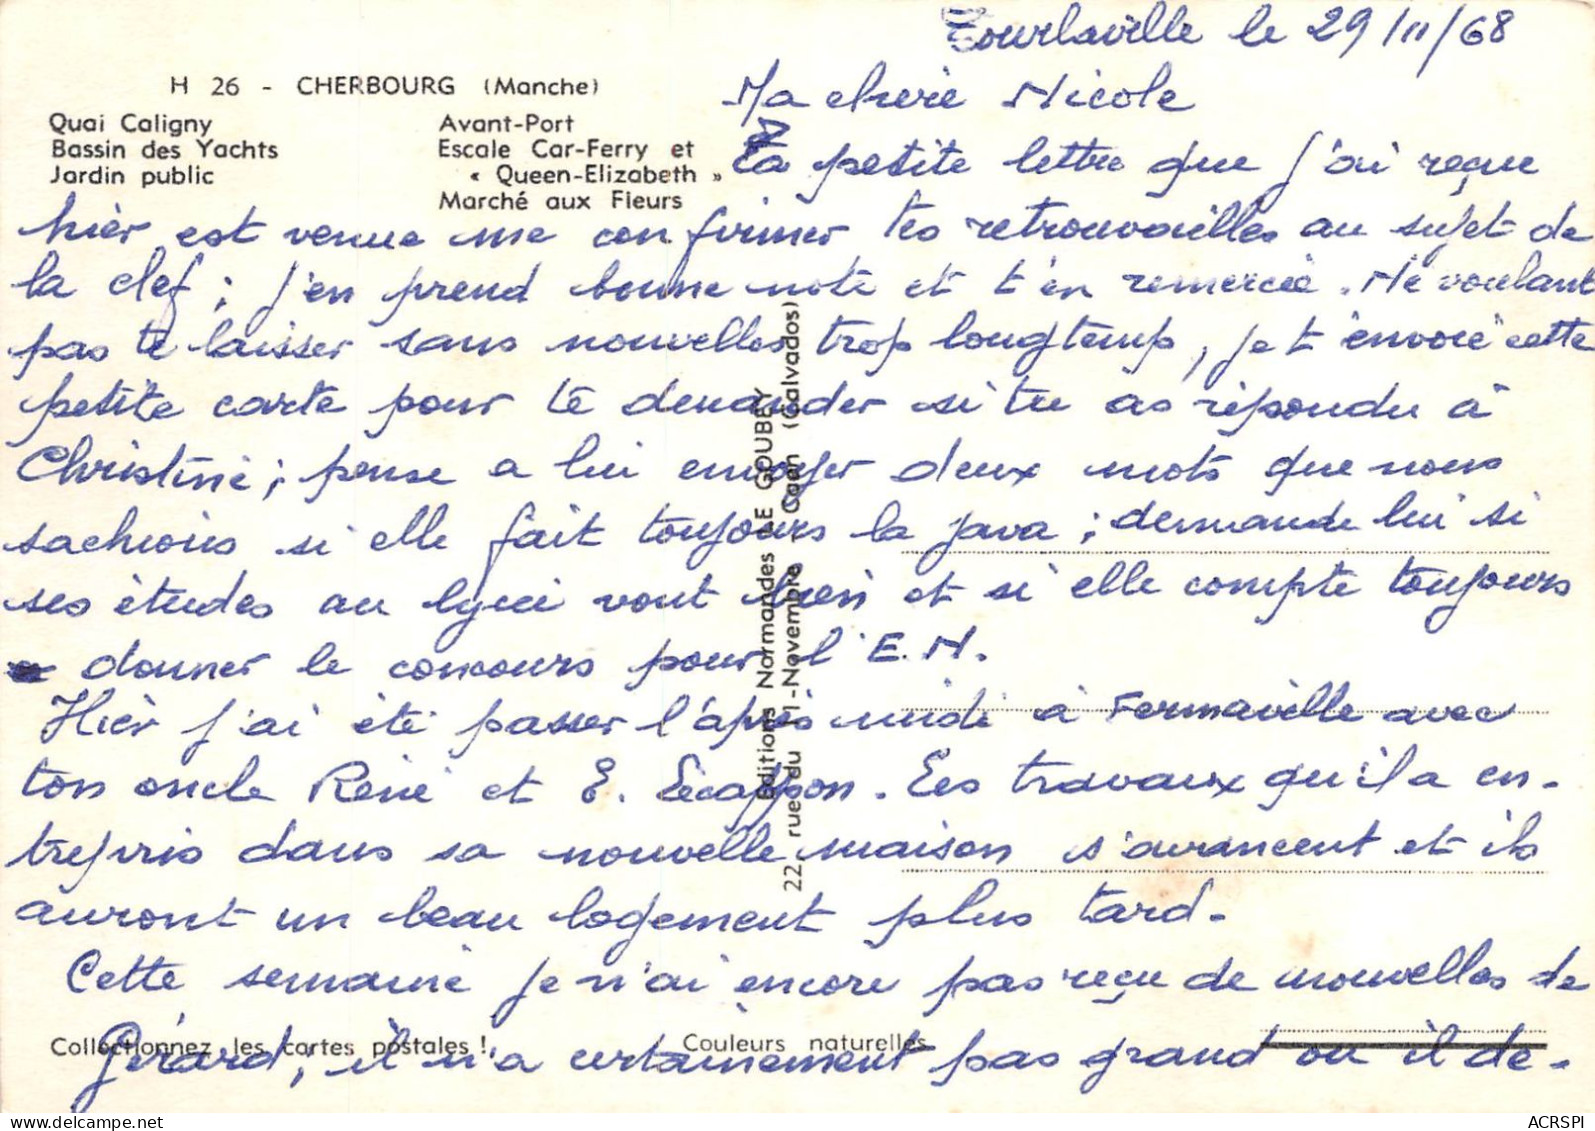 Tourlaville le 29/11/68
H 26 - CHERBOURG (Manche)
Quai Caligny
Bassin des Yachts
Jardin public
Avant-Port
Escale Car-Ferry et
« Queen-Elizabeth »
Marché aux Fleurs
Ma chérie Nicole
Ta petite lettre que j'ai reçue
hier est venue me confirmer tes retrouvailles au sujet de
la clef ; j'en prend bonne note et t'en remercie. Ne voulant
pas te laisser sans nouvelles trop longtemps, je t'envoie cette
petite carte pour te demander si tu as répondu à
Christine ; pense a lui envoyer deux mots que nous
sachions si elle fait toujours la java ; demande lui si
ses études au lycée vont bien et si elle compte toujours
donner le concours pour l'E.N.
Hier j'ai été passer l'après midi à Fermaville avec
ton oncle René et E. Les travaux qu'il a en-
trepris dans sa nouvelle maison s'avancent et ils
auront un beau logement plus tard.
Cette semaine je n'ai encore pas reçu de nouvelles de
Gérard ; il n'a certainement pas grand ou il de-
Editions Normandes LE GOUBEY
22, rue du 11-Novembre - Caen (Calvados)
Collectionnez les cartes postales !
Couleurs naturelles
ACRSPI